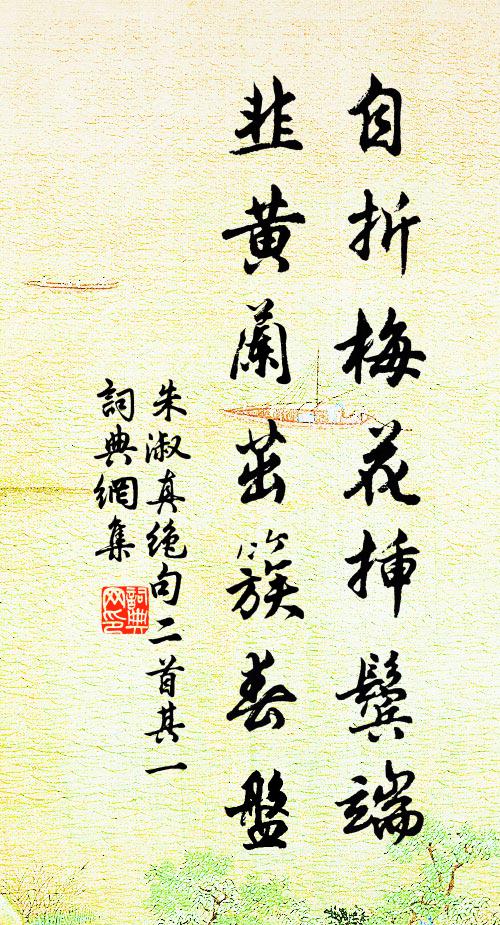 自折梅花挿鬓端
韭黄蘭茁簇春盤
朱淑真绝句二首其一
詞典網集
詞典网印